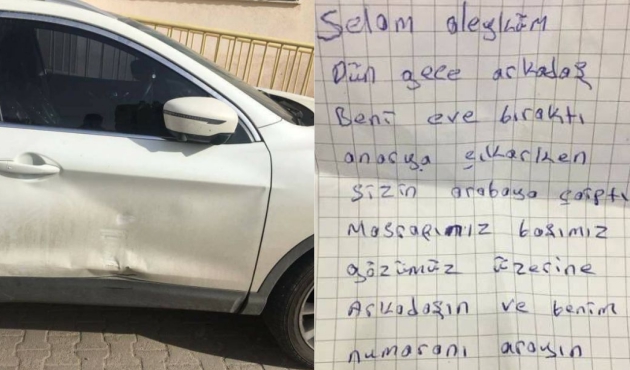 Selam aleyküm
Dün gece arkadaş
Beni eve bıraktı
anarya çıkarken
sizin arabaya çarptı
Massrafınız başımız
gözümüz üzerine
Arkadaşın ve benim
numaranı arayın